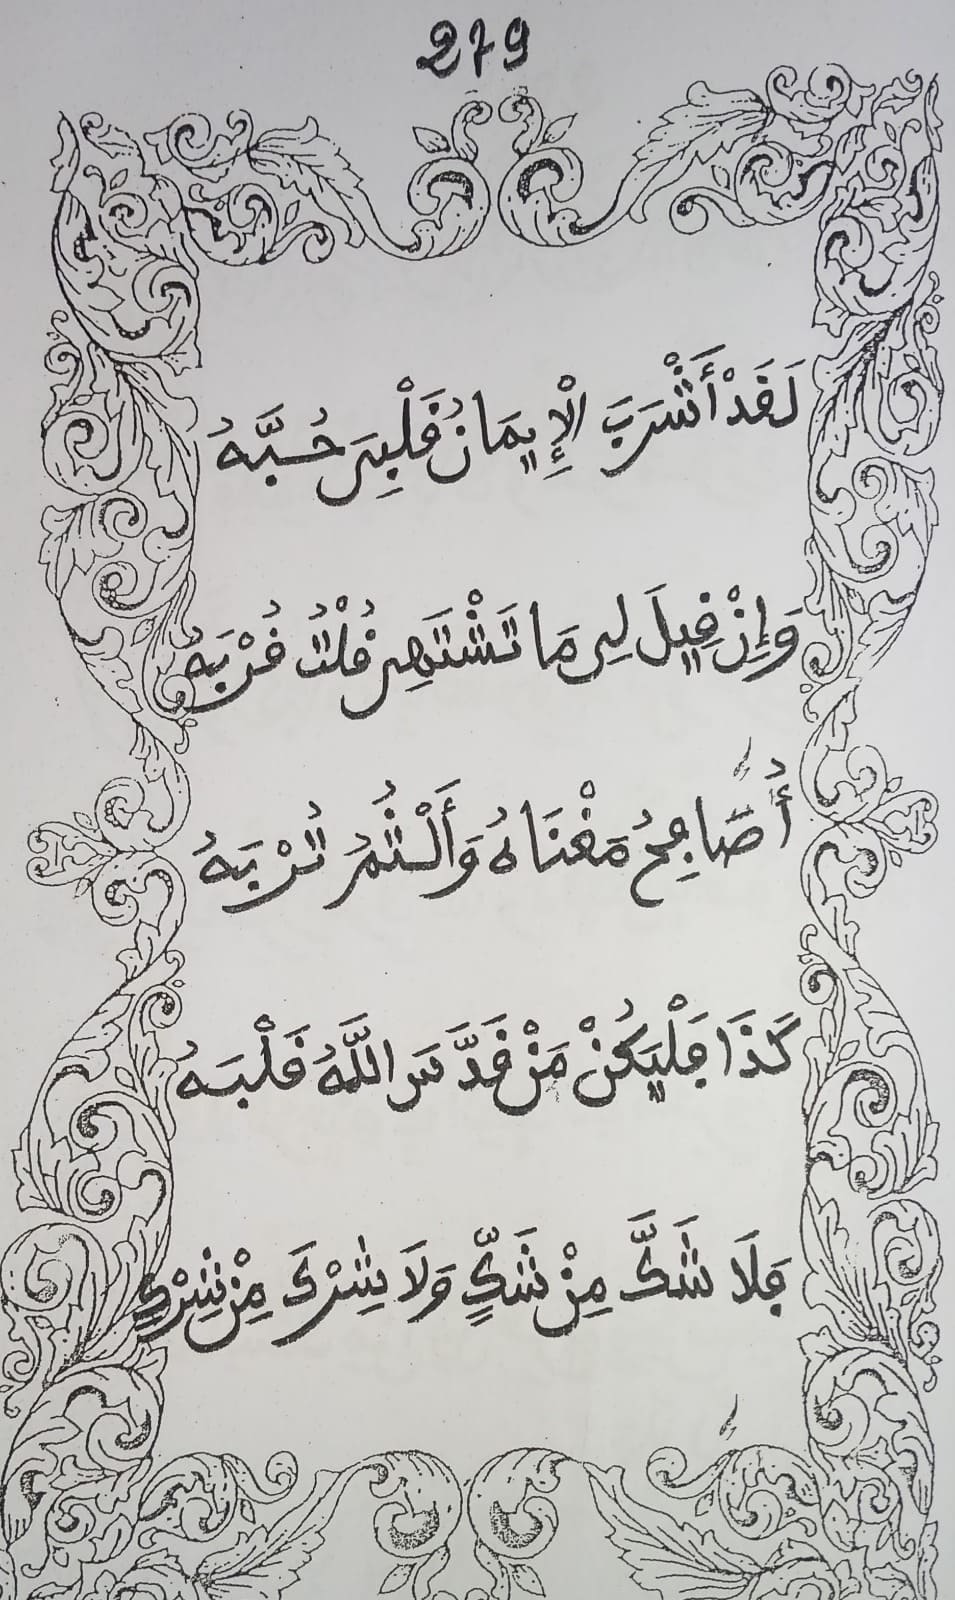 279
لَقَدْ أَشْرَبَ الْإِيمَانُ قَلْبِي حُبَّهُ
وَإِنْ قِيلَ لِي مَا تَشْتَهِي قُلْتُ قُرْبَهُ
أُصَافِحُ مَغْنَاهُ وَأَلْثُمُ تُرْبَهُ
كَذَا فَلْيَكُنْ مَنْ قَدَّسَ اللَّهُ قَلْبَهُ
فَلَا شَكَّ مِنْ شَكٍّ وَلَا شِرْكَ مِنْ شِرْكٍ